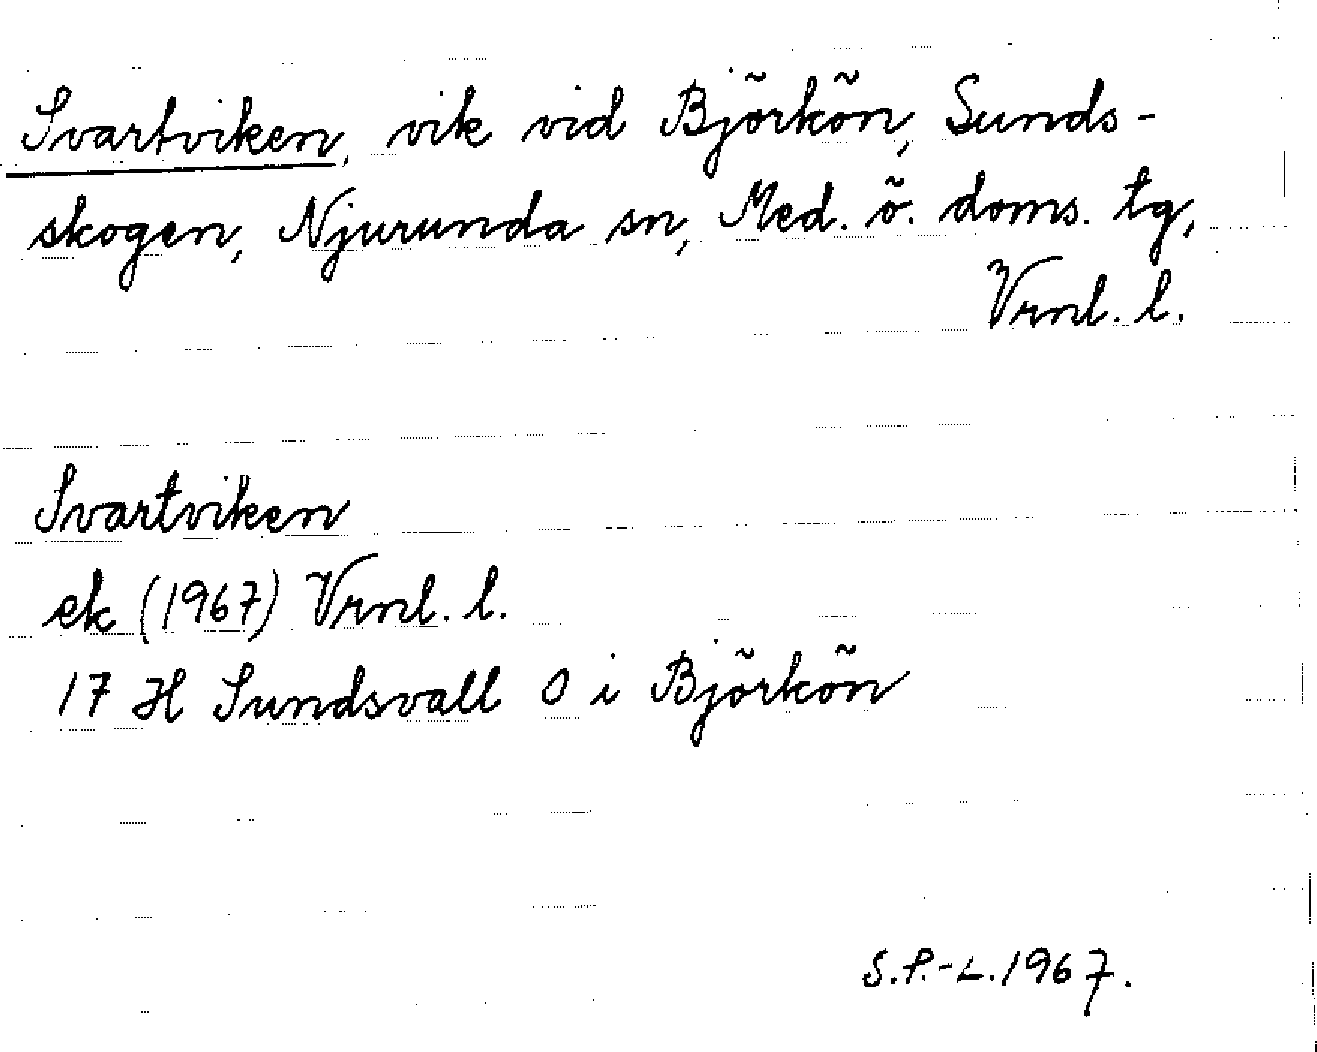 Svartviken, vik vid Björkön, Sunds-
skogen, Njurunda sn, Med. ö. doms. tg,
Vrnl. l.
Svartviken
ek (1967) Vrnl. l.
17 H Sundsvall O i Björkön
S.P.-L. 1967.